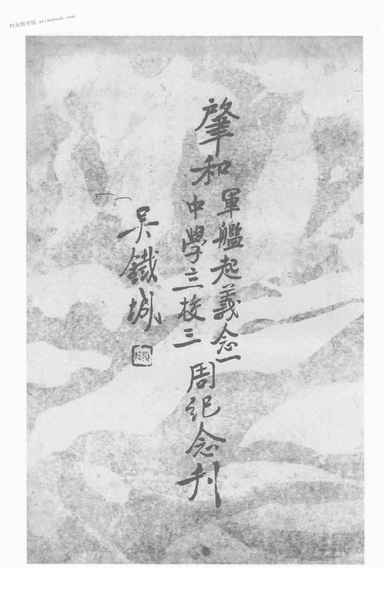 肇和
軍艦起義念一
中學立校三
周紀念刊
吳鐵城